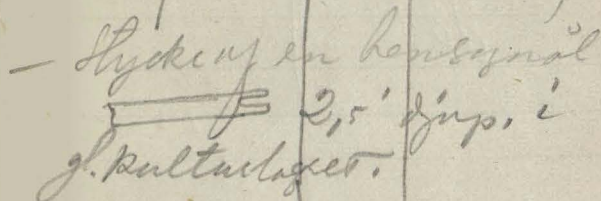 – Stycke af en bensynål
2,5' djup. i
gl. kulturlagret.